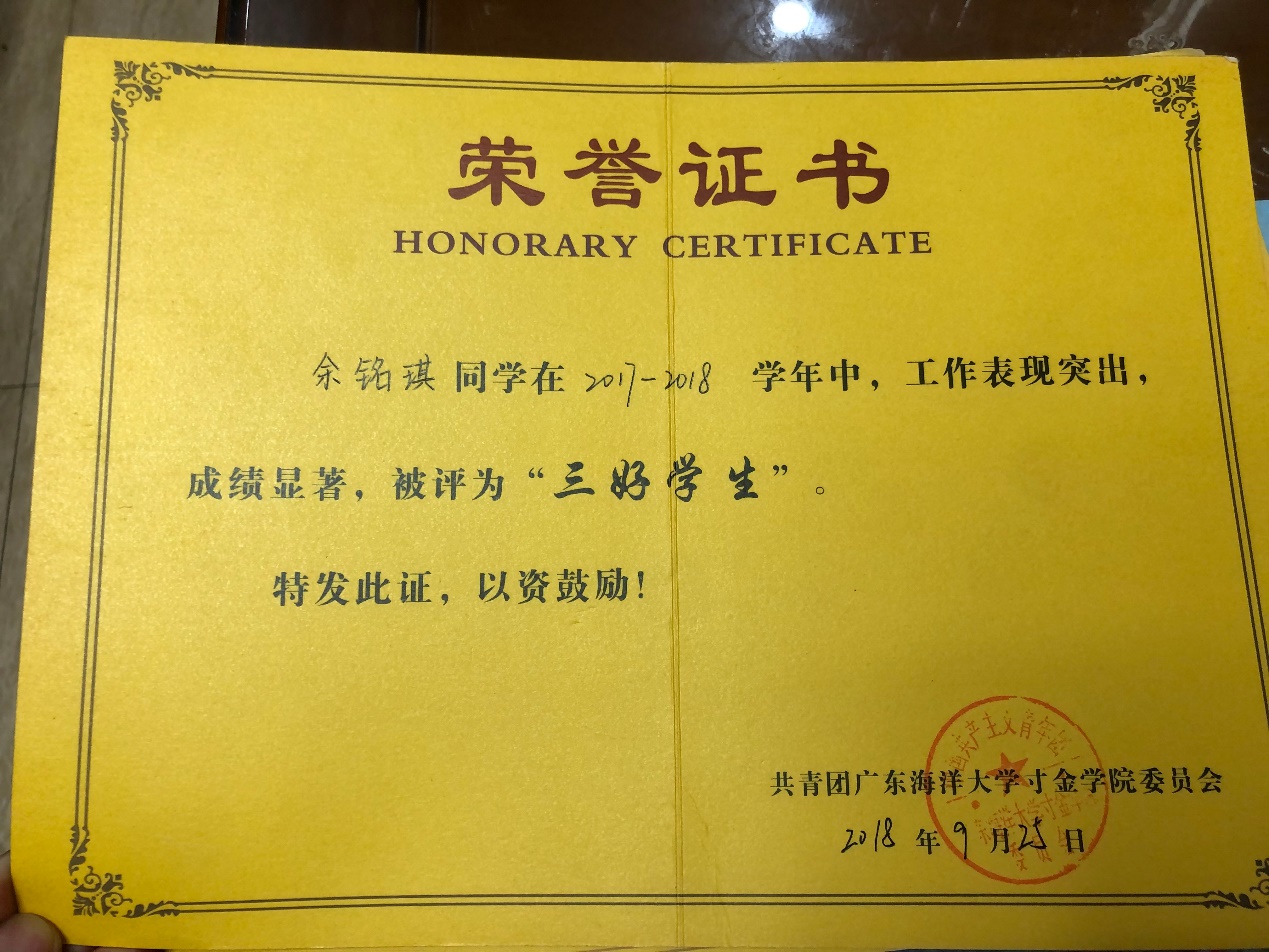 荣誉证书
HONORARY CERTIFICATE
余铭琪同学在 2017-2018 学年中，工作表现突出，
成绩显著，被评为“三好学生”。
特发此证，以资鼓励！
共青团广东海洋大学寸金学院委员会
2018 年 9 月 25 日
共产主义青年团
海洋大学寸金
委员